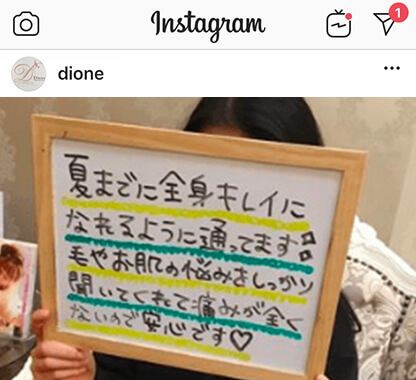 Instagram
1
dione
夏までに全身キレイに
なれるように通ってます!
毛やお肌の悩みをしっかり
聞いてくれて痛みが全く
ないので安心です♡